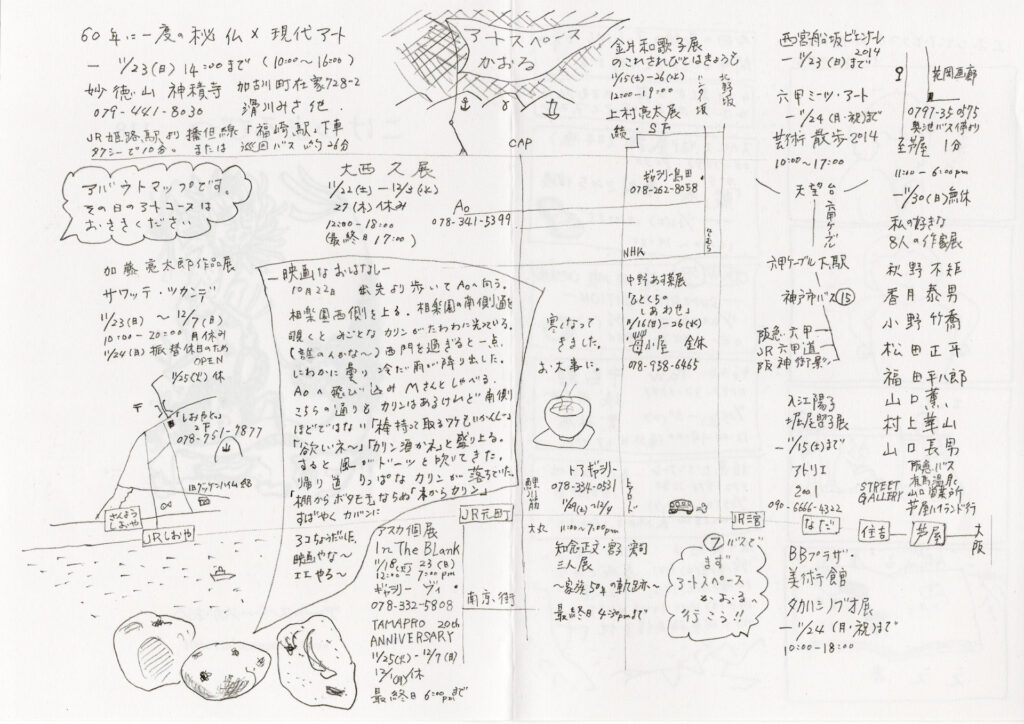 60年に一度の秘仏×現代アート
— 11/23(日) 14:00まで (10:00〜16:00)
妙徳山 神積寺 加古川町在家728-2
079-441-8036 滑川みさ 他.
JR姫路駅より播但線「福崎駅」下車
タクシーで10分。または巡回バス 約26分
アートスペース
かおる
CAP
金井和歌子展
のこれされびとはきょうも
11/15(土)-26(水)
12:00-19:00
上村亮太展
ハンター坂
北野坂
西宮船坂ビエンナーレ
2014
— 11/23(日)まで
六甲ミーツ・アート
— 11/24(月・祝)まで
芸術散歩2014
10:00〜17:00
天望台
六甲ケーブル
六甲ケーブル下駅
神戸市バス⑮
阪急・六甲
JR六甲道
芦屋
0797-35-0575
1分
11:00-6:00pm
— 11/30(日)無休
私の好きな
8人の作家展
秋野不矩
香月泰男
小野竹喬
松田正平
福田平八郎
山口薫
村上華山
山口長男
アバウトマップです。
その日のアートコースは
おききください
大西久展
11/22(土)-12/3(水)
27(木)休み
12:00-18:00
(最終日17:00)
Ao
078-341-5399
ギャラリー島田
078-262-8058
NHK
加藤亮太郎作品展
サワッテ・ツカンデ
11/23(日)〜12/7(日)
10:00-20:00 月休み
11/24(日)振替休日のため
OPEN
11/25(火)休
〒
しおやととと
2F
078-751-7877
旧グッゲンハイム邸
さんようしおや
JRしおや
—映画なおはなし—
10月22日 出先より歩いてAoへ向う。
相楽園西側を上る。相楽園の南側通を
覗くと みごとなカリンがたわわに光っている。
(誰のんかな〜)西門を過ぎると一点、
にわかに曇り 冷たい雨が降り出した。
Aoへ飛び込み Mさんとしゃべる.
こちらの通りもカリンはあるけれど南側
ほどではない「棒持って取るワケもいかんしー
「欲しいネ〜」「カリン酒かネ」と盛り上る。
すると風がドーッと吹いてきた。
帰り道 りっぱなカリンが落ちていた。
「棚からボタモチならぬ「木からカリン」
すばやくカバンに
3コちょうだいした.
映画やな〜
エエやろ〜
アスカ個展
In The Blank
11/18(火) 23(日)
12:00-7:00pm
ギャラリー ヴィ
078-332-5808
TAMAPRO 20th
ANNIVERSARY
11/25(火)-12/7(日)
12/1(月)休
最終日6:00pmまで
JR元町
南京街
寒くなって
きました。
お大事に。
中野あす葉展
「ひとくちの
しあわせ」
11/16(日)-26(水)
苺小屋 金休
078-958-6465
鯉川筋
大丸
トアギャラリー
078-334-0531
11/29(土)-12/4
11:00〜7:00pm
三人展
〜家族50年の軌跡〜
最終日4:30pmまで
トアロード
JR三宮
⑦バスで
まず
アートスペース
かおるへ
行こう!!
入江陽子
堀尾昭子展
— 11/15(土)まで
アトリエ
2001
090-6666-4322
阪急バス
有馬温泉
山口営業所
芦屋ハイランド行
STREET
GALLERY
なだ
住吉
芦屋
大阪
BBプラザ・
美術館
タカハシノブオ展
— 11/24(月・祝)まで
10:00-18:00